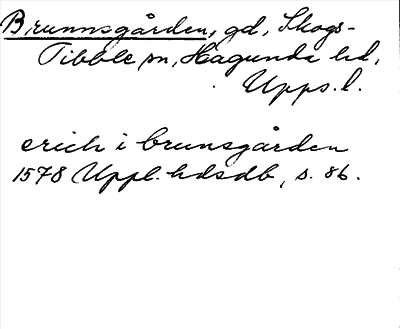 Brunnsgården, gd, Skogs-
Tibble sn, Hagunda hd,
Upps. l.
erich i brunsgården
1578 Uppl. hdsdb, s. 86.